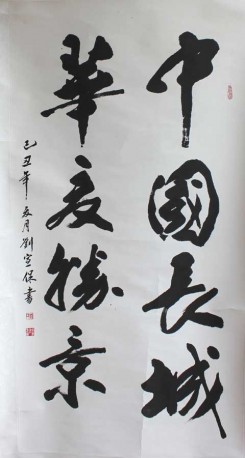 中國長城
華夏勝景
己丑年夏月劉宝保書